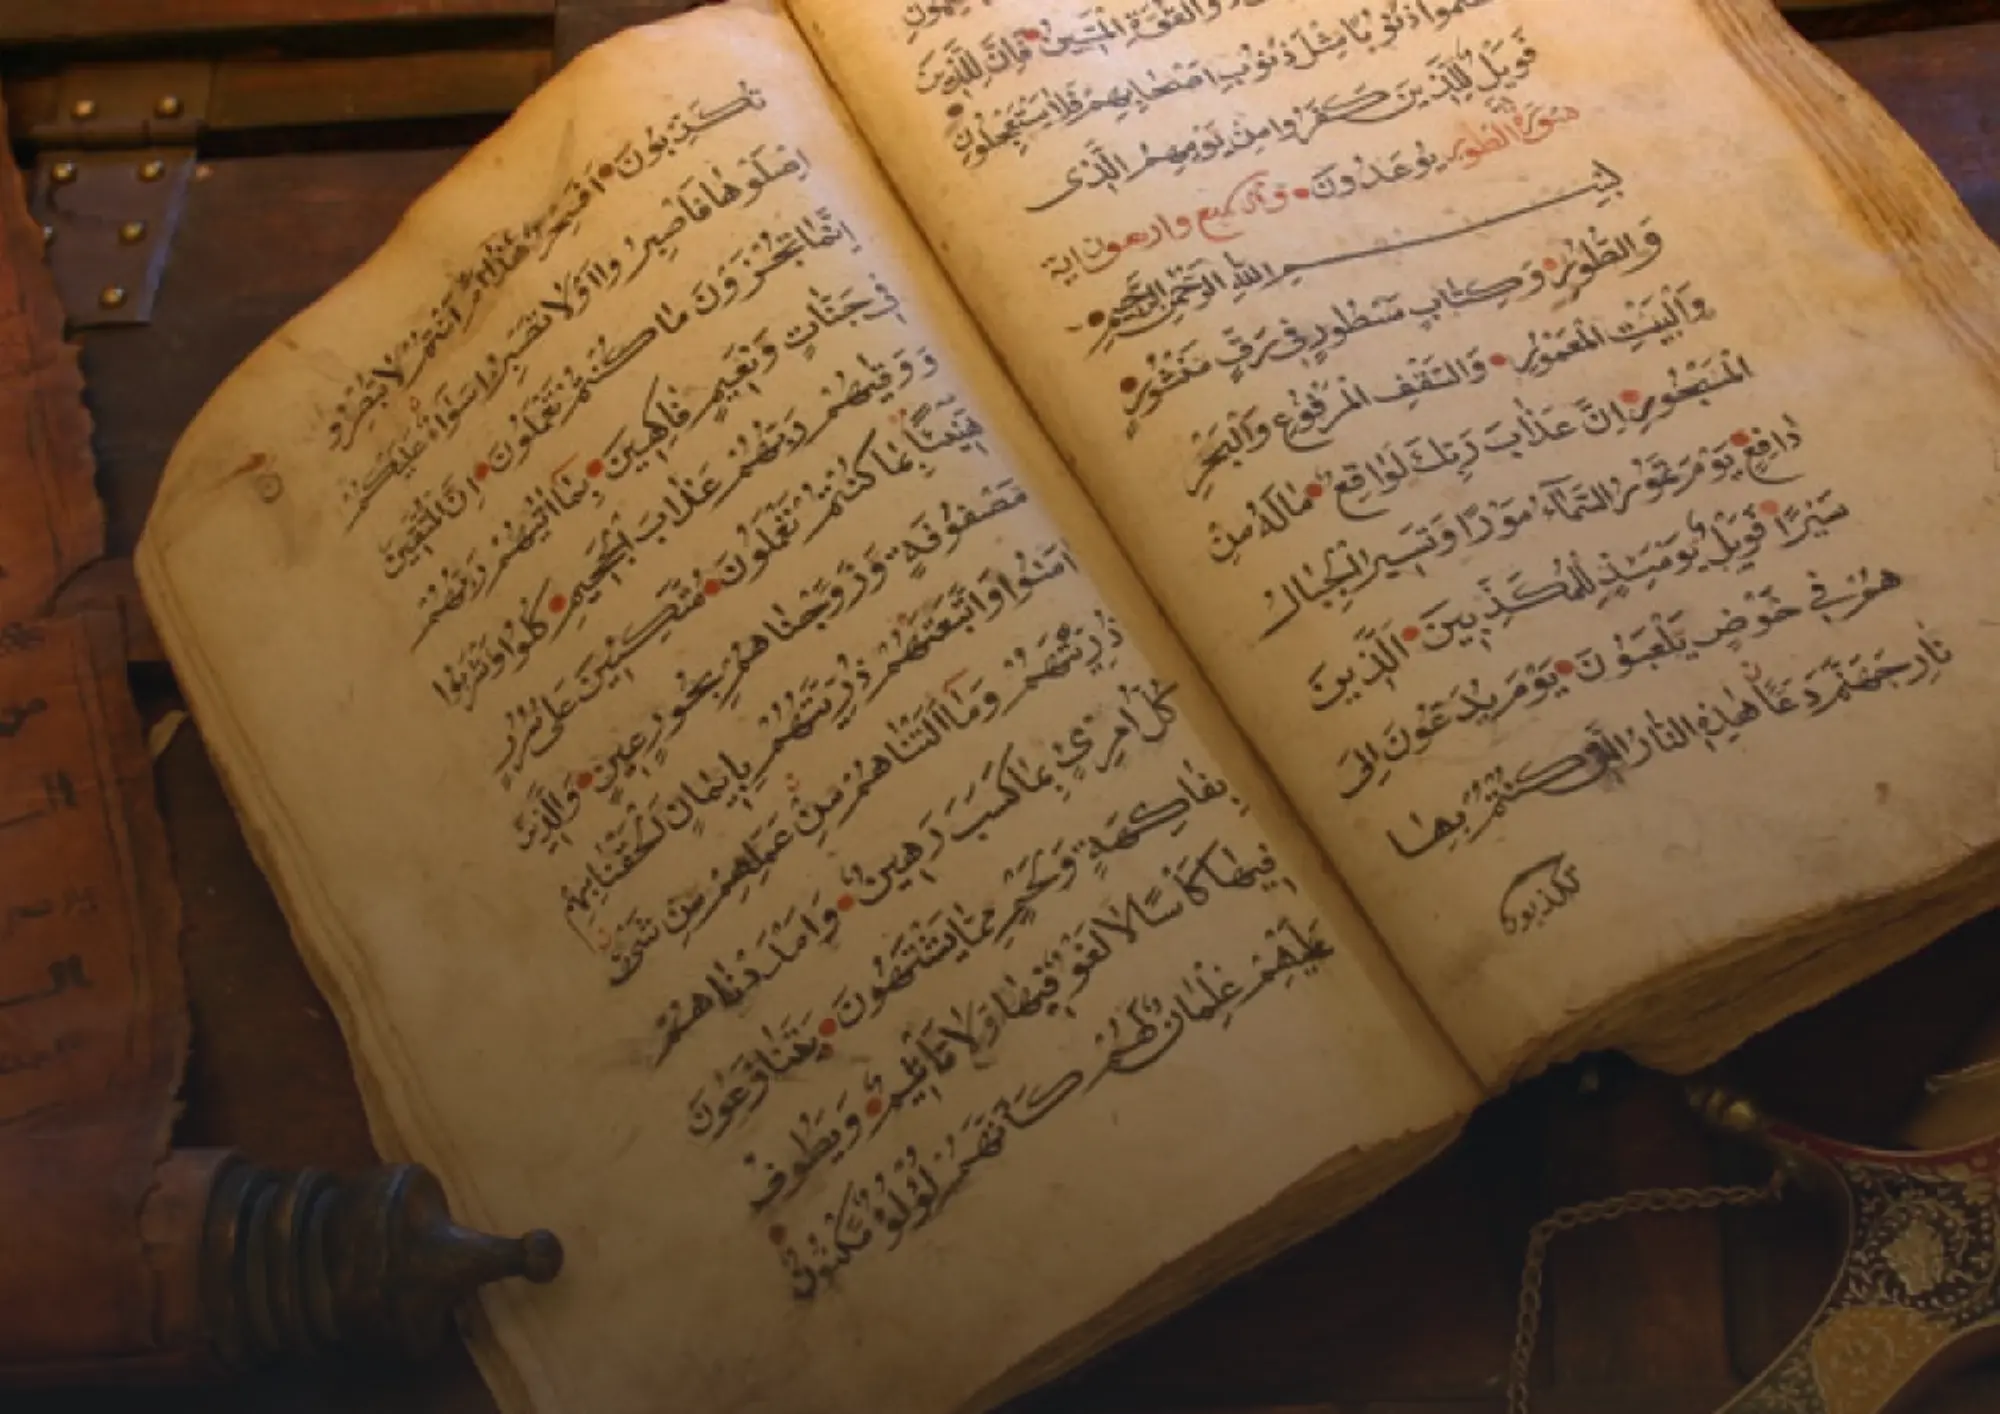 ذو القوة المتين فان للذين
ظلموا ذنوبا مثل ذنوب اصحابهم فلا يستعجلون
فَوَيْلٌ لِلَّذِينَ كَفَرُوا مِنْ يَوْمِهِمُ الَّذِى
يُوعَدُونَ سورة الطور
وهى تسع واربعون اية
بِسْمِ اللهِ الرَّحْمٰنِ الرَّحِيمِ
وَالطُّورِ وَكِتَابٍ مَسْطُورٍ فِى رَقٍّ مَنْشُورٍ
وَالْبَيْتِ الْمَعْمُورِ وَالسَّقْفِ الْمَرْفُوعِ وَالْبَحْرِ
الْمَسْجُورِ اِنَّ عَذَابَ رَبِّكَ لَوَاقِعٌ مَالَهُ مِنْ
دَافِعٍ يَوْمَ تَمُورُ السَّمَآءُ مَوْرًا وَتَسِيرُ الْجِبَالُ
سَيْرًا فَوَيْلٌ يَوْمَئِذٍ لِلْمُكَذِّبِينَ اَلَّذِينَ
هُمْ فِى خَوْضٍ يَلْعَبُونَ يَوْمَ يُدَعُّونَ اِلَى
نَارِ جَهَنَّمَ دَعًّا هٰذِهِ النَّارُ الَّتِى كُنْتُمْ بِهَا
تكذبون
تُكَذِّبُونَ اَفَسِحْرٌ هٰذَا اَمْ اَنْتُمْ لَا تُبْصِرُونَ
اِصْلَوْهَا فَاصْبِرُوا اَوْ لَا تَصْبِرُوا سَوَآءٌ عَلَيْكُمْ
اِنَّمَا تُجْزَوْنَ مَا كُنْتُمْ تَعْمَلُونَ اِنَّ الْمُتَّقِينَ
فِى جَنَّاتٍ وَنَعِيمٍ فَاكِهِينَ بِمَا اٰتٰيهُمْ رَبُّهُمْ
وَوَقٰيهُمْ رَبُّهُمْ عَذَابَ الْجَحِيمِ كُلُوا وَاشْرَبُوا
هَنِيئًا بِمَا كُنْتُمْ تَعْمَلُونَ مُتَّكِئِينَ عَلٰى سُرُرٍ
مَصْفُوفَةٍ وَزَوَّجْنَاهُمْ بِحُورٍ عِينٍ وَالَّذِينَ
اٰمَنُوا وَاتَّبَعَتْهُمْ ذُرِّيَّتُهُمْ بِاِيمَانٍ اَلْحَقْنَا بِهِمْ
ذُرِّيَّتَهُمْ وَمَا اَلَتْنَاهُمْ مِنْ عَمَلِهِمْ مِنْ شَىْءٍ
كُلُّ امْرِئٍ بِمَا كَسَبَ رَهِينٌ وَاَمْدَدْنَاهُمْ
بِفَاكِهَةٍ وَلَحْمٍ مِمَّا يَشْتَهُونَ يَتَنَازَعُونَ
فِيهَا كَأْسًا لَا لَغْوٌ فِيهَا وَلَا تَأْثِيمٌ وَيَطُوفُ
عَلَيْهِمْ غِلْمَانٌ لَهُمْ كَاَنَّهُمْ لُؤْلُؤٌ مَكْنُونٌ